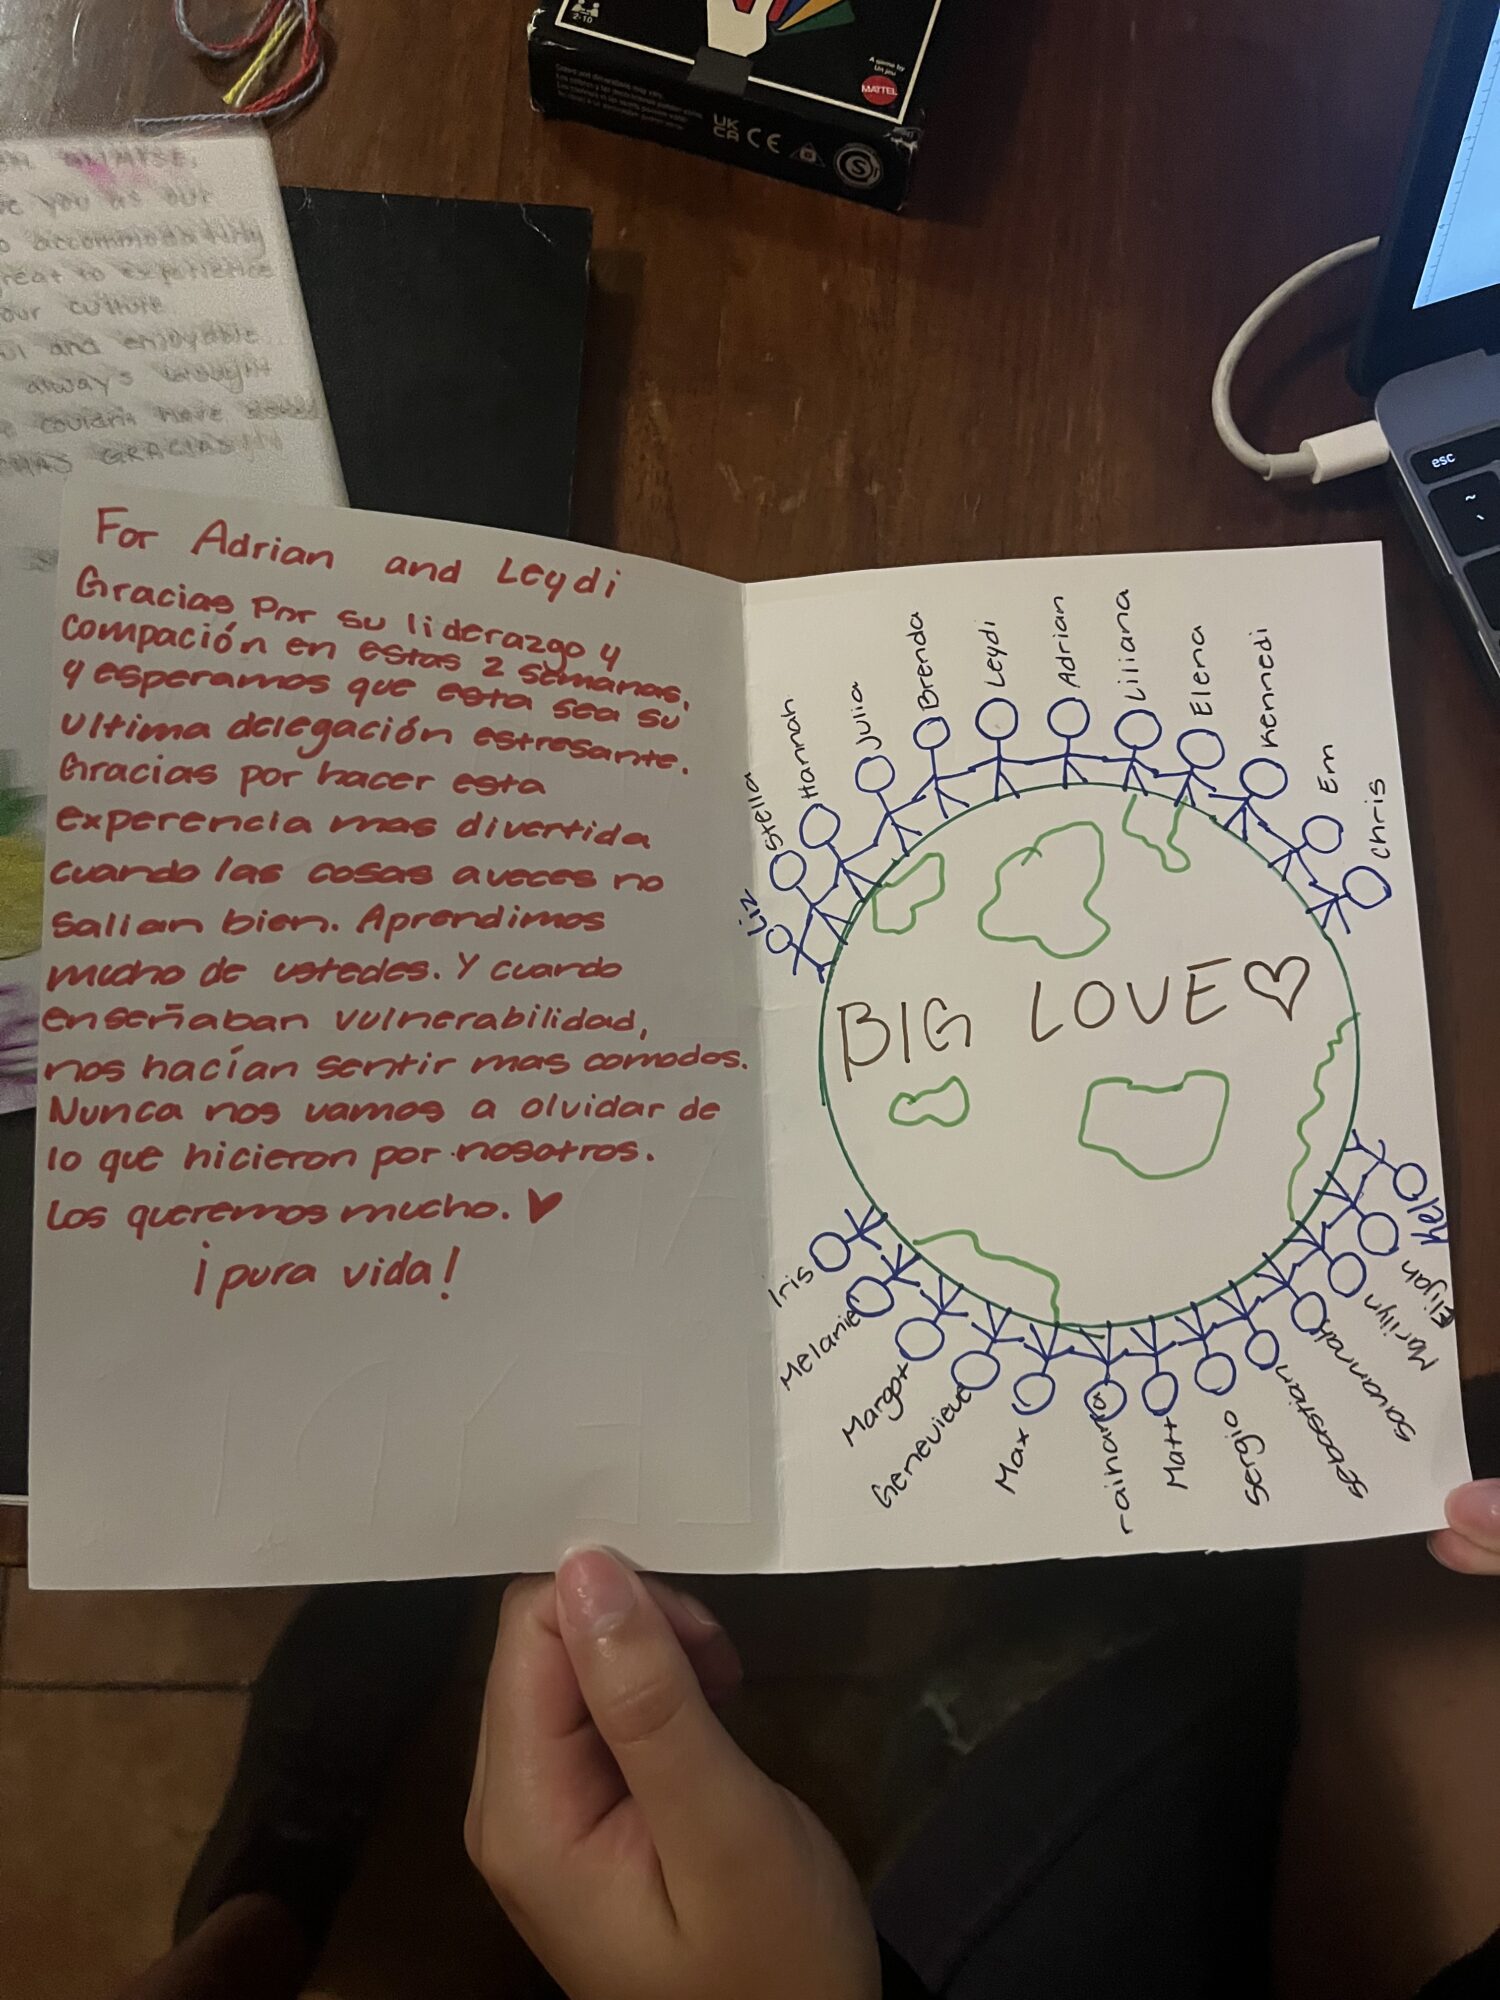 2-10
A game by
Un jeu
MATTEL
UK
CA CE
S
esc
~
you as our
accommodating
great to experience
our culture
and enjoyable
always
couldn't have
GRACIAS!!!
For Adrian and Leydi
Gracias por su liderazgo y
compación en estas 2 semanas.
y esperamos que esta sea su
ultima delegación estresante.
Gracias por hacer esta
experencia mas divertida
cuando las cosas aveces no
salian bien. Aprendimos
mucho de ustedes. Y cuando
enseñaban vulnerabilidad,
nos hacían sentir mas comodos.
Nunca nos vamos a olvidar de
lo que hicieron por nosotros.
Los queremos mucho. ♥
¡pura vida!
Liz
Stella
Hannah
Julia
Brenda
Leydi
Adrian
Liliana
Elena
Kennedi
Em
Chris
BIG LOVE ♡
Iris
Melanie
Margox
Genevieve
Max
rainara
Matt
Sergio
sebastian
savannah
Marilyn
Elijah
Mel